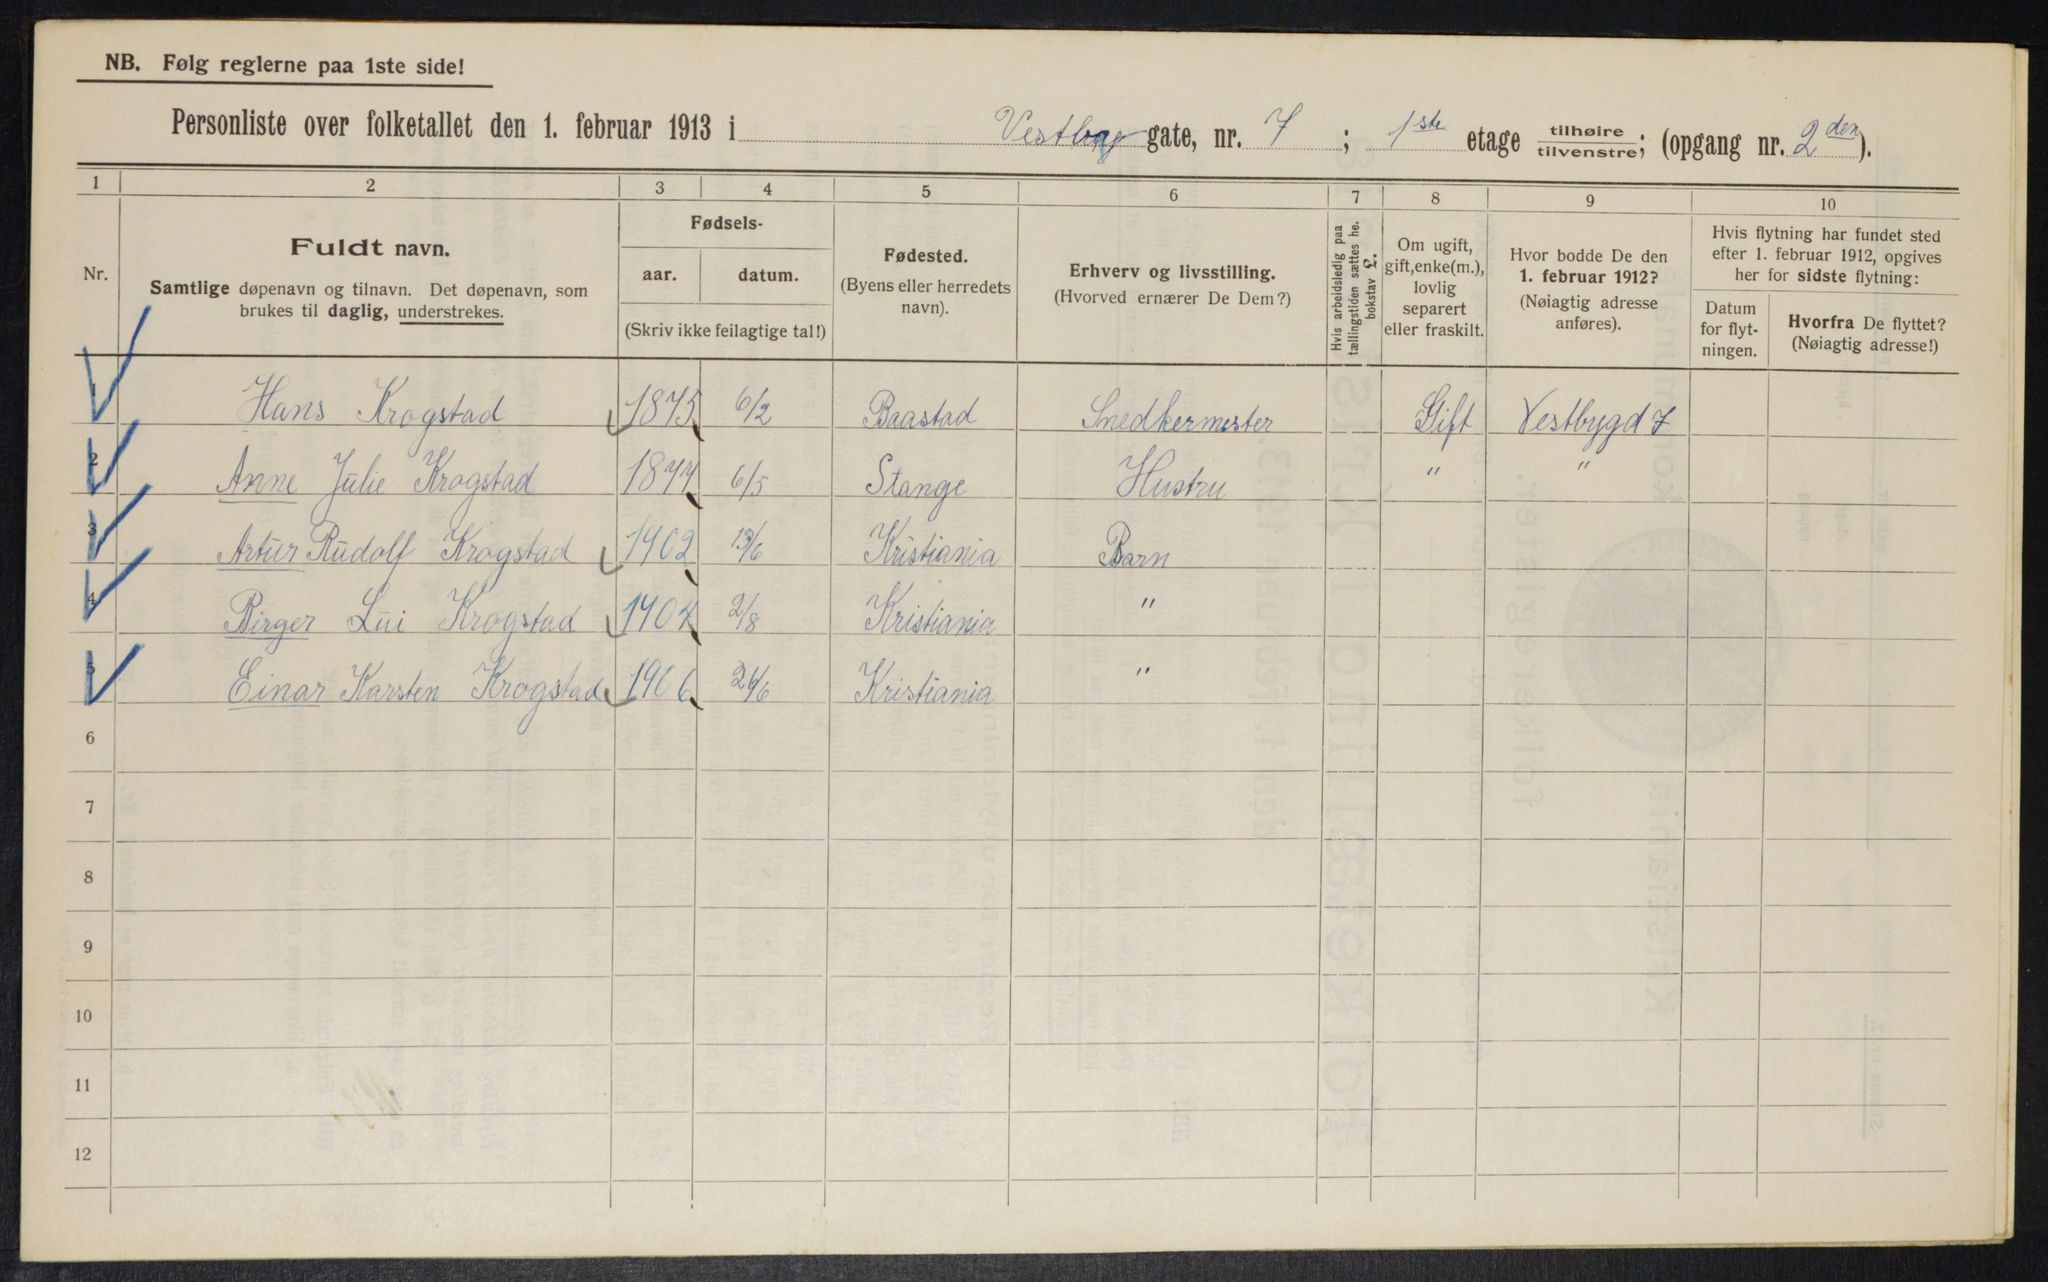 NB. Følg reglerne paa 1ste side!
Personliste over folketallet den 1. februar 1913 i Vestbyg gate, nr. 7; 1ste etage tilhøire tilvenstre; (opgang nr. 2den).
1 2 3 4 5 6 7 8 9 10
Nr.
Fuldt navn.
Samtlige døpenavn og tilnavn. Det døpenavn, som
brukes til daglig, understrekes.
Fødsels-
aar. datum.
(Skriv ikke feilagtige tal!)
Fødested.
(Byens eller herredets
navn).
Erhverv og livsstilling.
(Hvorved ernærer De Dem?)
Hvis arbeidsledig paa
tællingstiden sættes he.
bokstav L.
Om ugift,
gift, enke(m.),
lovlig
separert
eller fraskilt.
Hvor bodde De den
1. februar 1912?
(Nøiagtig adresse
anføres).
Hvis flytning har fundet sted
efter 1. februar 1912, opgives
her for sidste flytning:
Datum
for flyt-
ningen.
Hvorfra De flyttet?
(Nøiagtig adresse!)
1 Hans Krogstad 1875 6/2 Baastad Snedkermester Gift Vestbygd 7
2 Anne Julie Krogstad 1877 6/5 Stange Hustru " "
3 Artur Rudolf Krogstad 1902 13/6 Kristiania Barn
4 Birger Lui Krogstad 1904 2/8 Kristiania "
5 Einar Karsten Krogstad 1906 Kristiania "
6
7
8
9
10
11
12